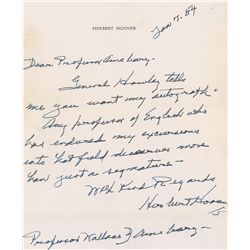 HERBERT HOOVER
Jan 7. 54
Dear Professor Armsbary.
General Howley tells
me you want my autograph.
Any professor of English who
has endured my excursions
into hat field deserves more
than just a signature—
With Kind Regards
Herbert Hoover
Professor Wallace